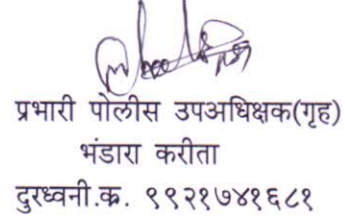 प्रभारी पोलीस उपअधिक्षक(गृह)
भंडारा करीता
दुरध्वनी.क्र. ९९२१७४१६८१